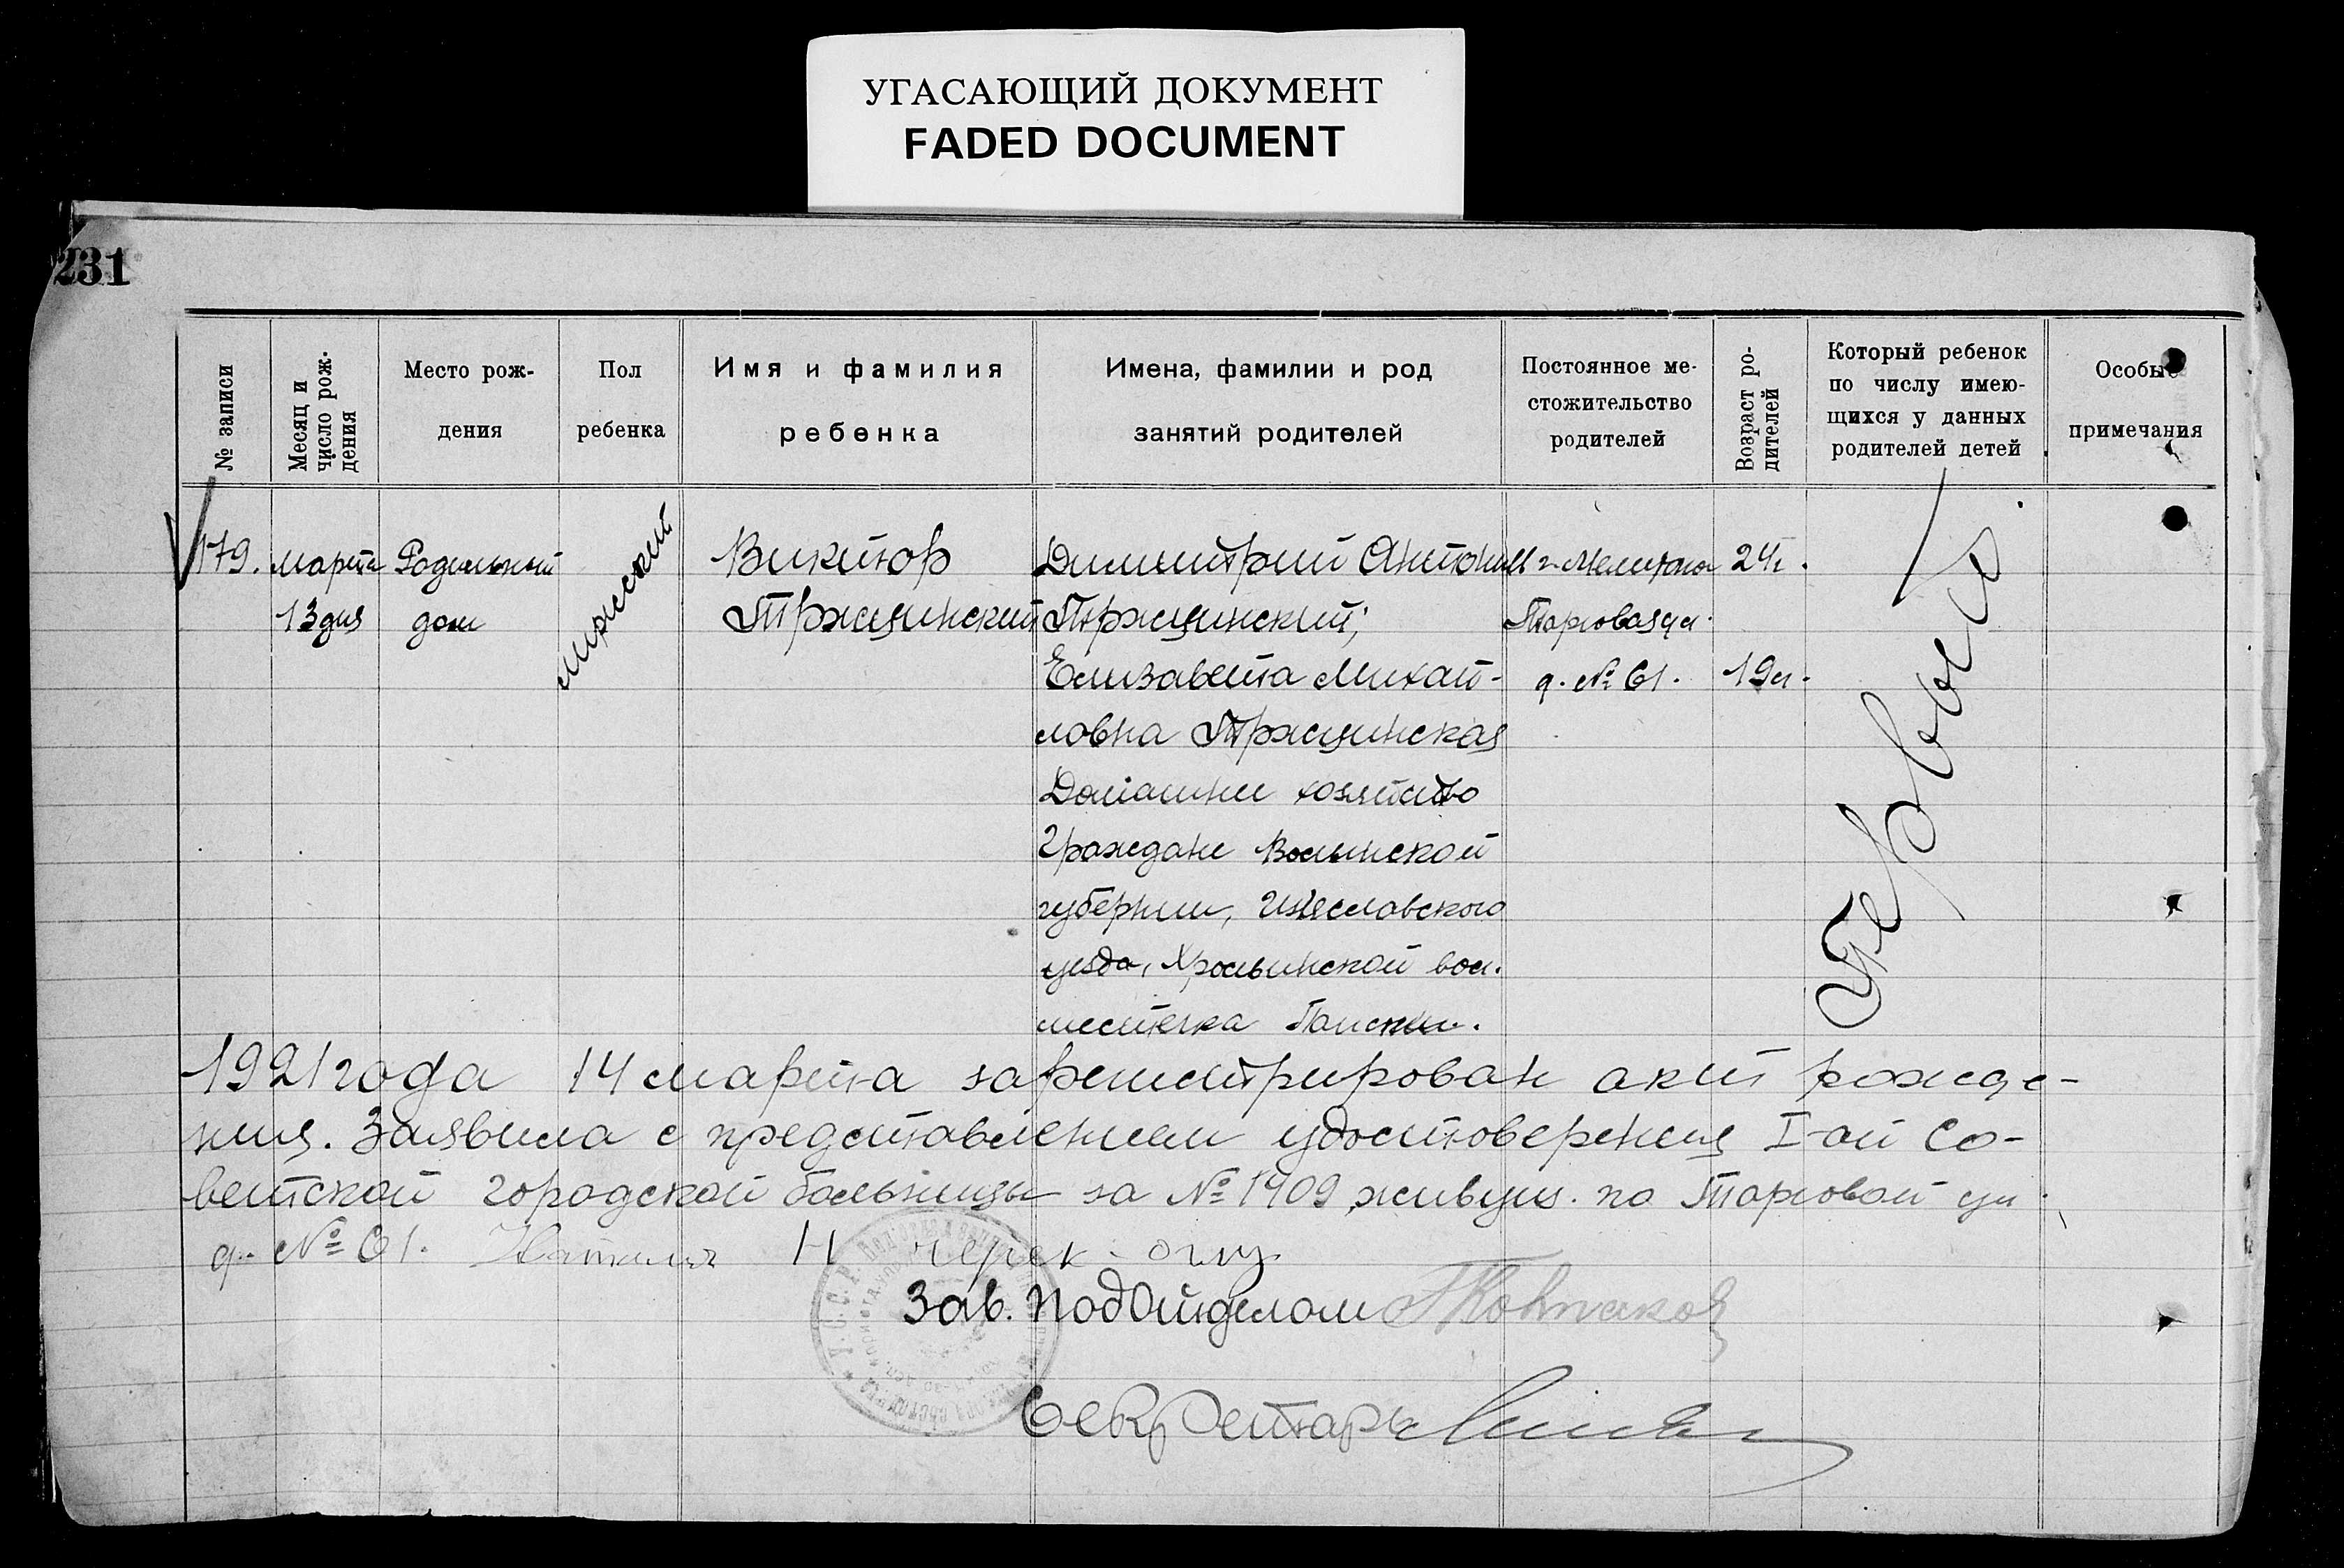 УГАСАЮЩИЙ ДОКУМЕНТ
FADED DOCUMENT
231
№ записи
Месяц и число рож-дения
Место рож-
дения
Пол
ребенка
Имя и фамилия
ребенка
Имена, фамилии и род
занятий родителей
Постоянное ме-
стожительство
родителей
Возраст ро-
дителей
Который ребенок
по числу имею-
щихся у данных
родителей детей
Особые
примечания
179.
марта
13 дня
Родильный
дом
мужской
Виктор
Тржцинский
Димитрий Антон
Тржцинский;
Елизавета Михай-
ловна Тржцинская
Домашнее хозяйство
Граждане Волынской
губернии, Изяславского
уезда, вол.
местечка
г.
Торговая ул.
д. № 61.
24 г.
19 л.
Первый
1921 года 14 марта зарегистрирован акт рожде-
ния. Заявила с представлением удостоверения I-ой Со-
ветской городской больницы за № 1909, живущ. по Торговой ул.
д. № 61. Наталия
Зав. ПодОтделом
Секретарь